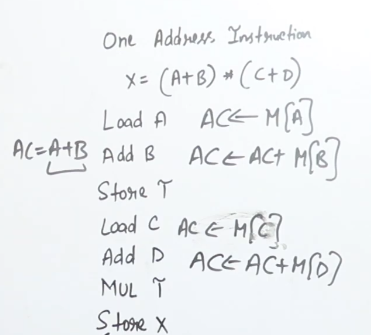 One Address Instruction
X = (A+B) * (C+D)
Load A AC← M[A]
AC=A+B Add B AC← AC+ M[B]
Store T
Load C AC ← M[C]
Add D AC← AC+M[D]
MUL T
Store X